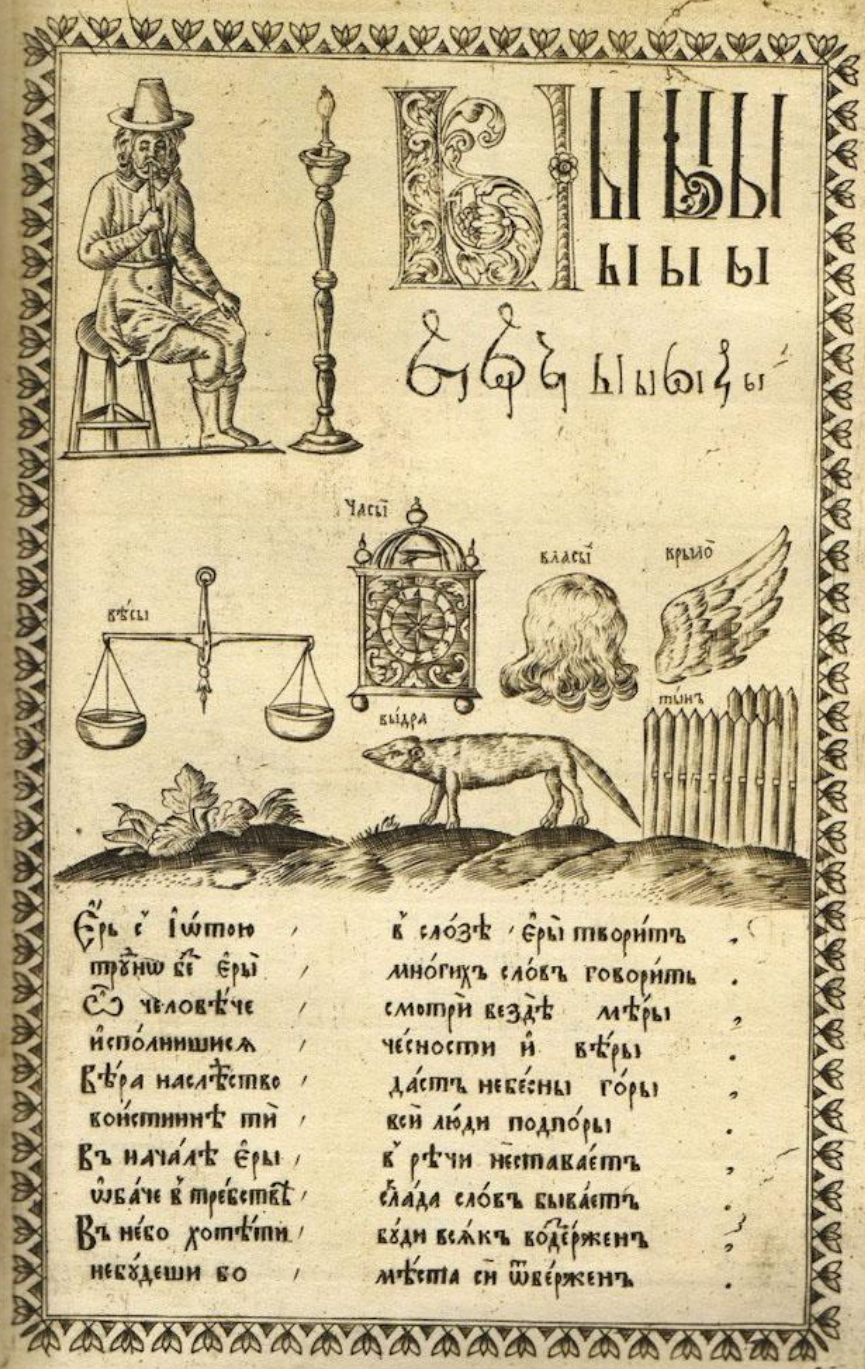 Ы Ы Ы Ы
ы ы ы
ы ы ы ы ы ы ы ы
Часы̀
власы̀
крыло̀
вѣ́сы
ты́нъ
вы́дра
Е҆́рь с̾ і҆ѡ́тою , в̾ сло́зѣ е҆ры̀ твори́тъ .
е҆ры̀ , мно́гихъ сло́въ говори́тъ .
Ѽ человѣ́че , смотрѝ вездѣ̀ мѣ́ры ,
и҆спо́лнишися , че́сности и҆ вѣ́ры .
Вѣ́ра наслѣ́ство , да́стъ небе́сны го́ры ,
вои́стиннѣ тѝ , всѝ лю́ди подпо́ры .
Въ нача́лѣ е҆ры̀ , в̾ рѣ́чи неставае́тъ ,
ѻ҆ба́че в̾ тре́бствѣ , скла́да сло́въ быва́етъ .
Въ не́бо хотѣ́ти , бу́ди вся́къ воде́рженъ ,
небу́деши бо , мѣ́ста сѝ ѿве́рженъ .